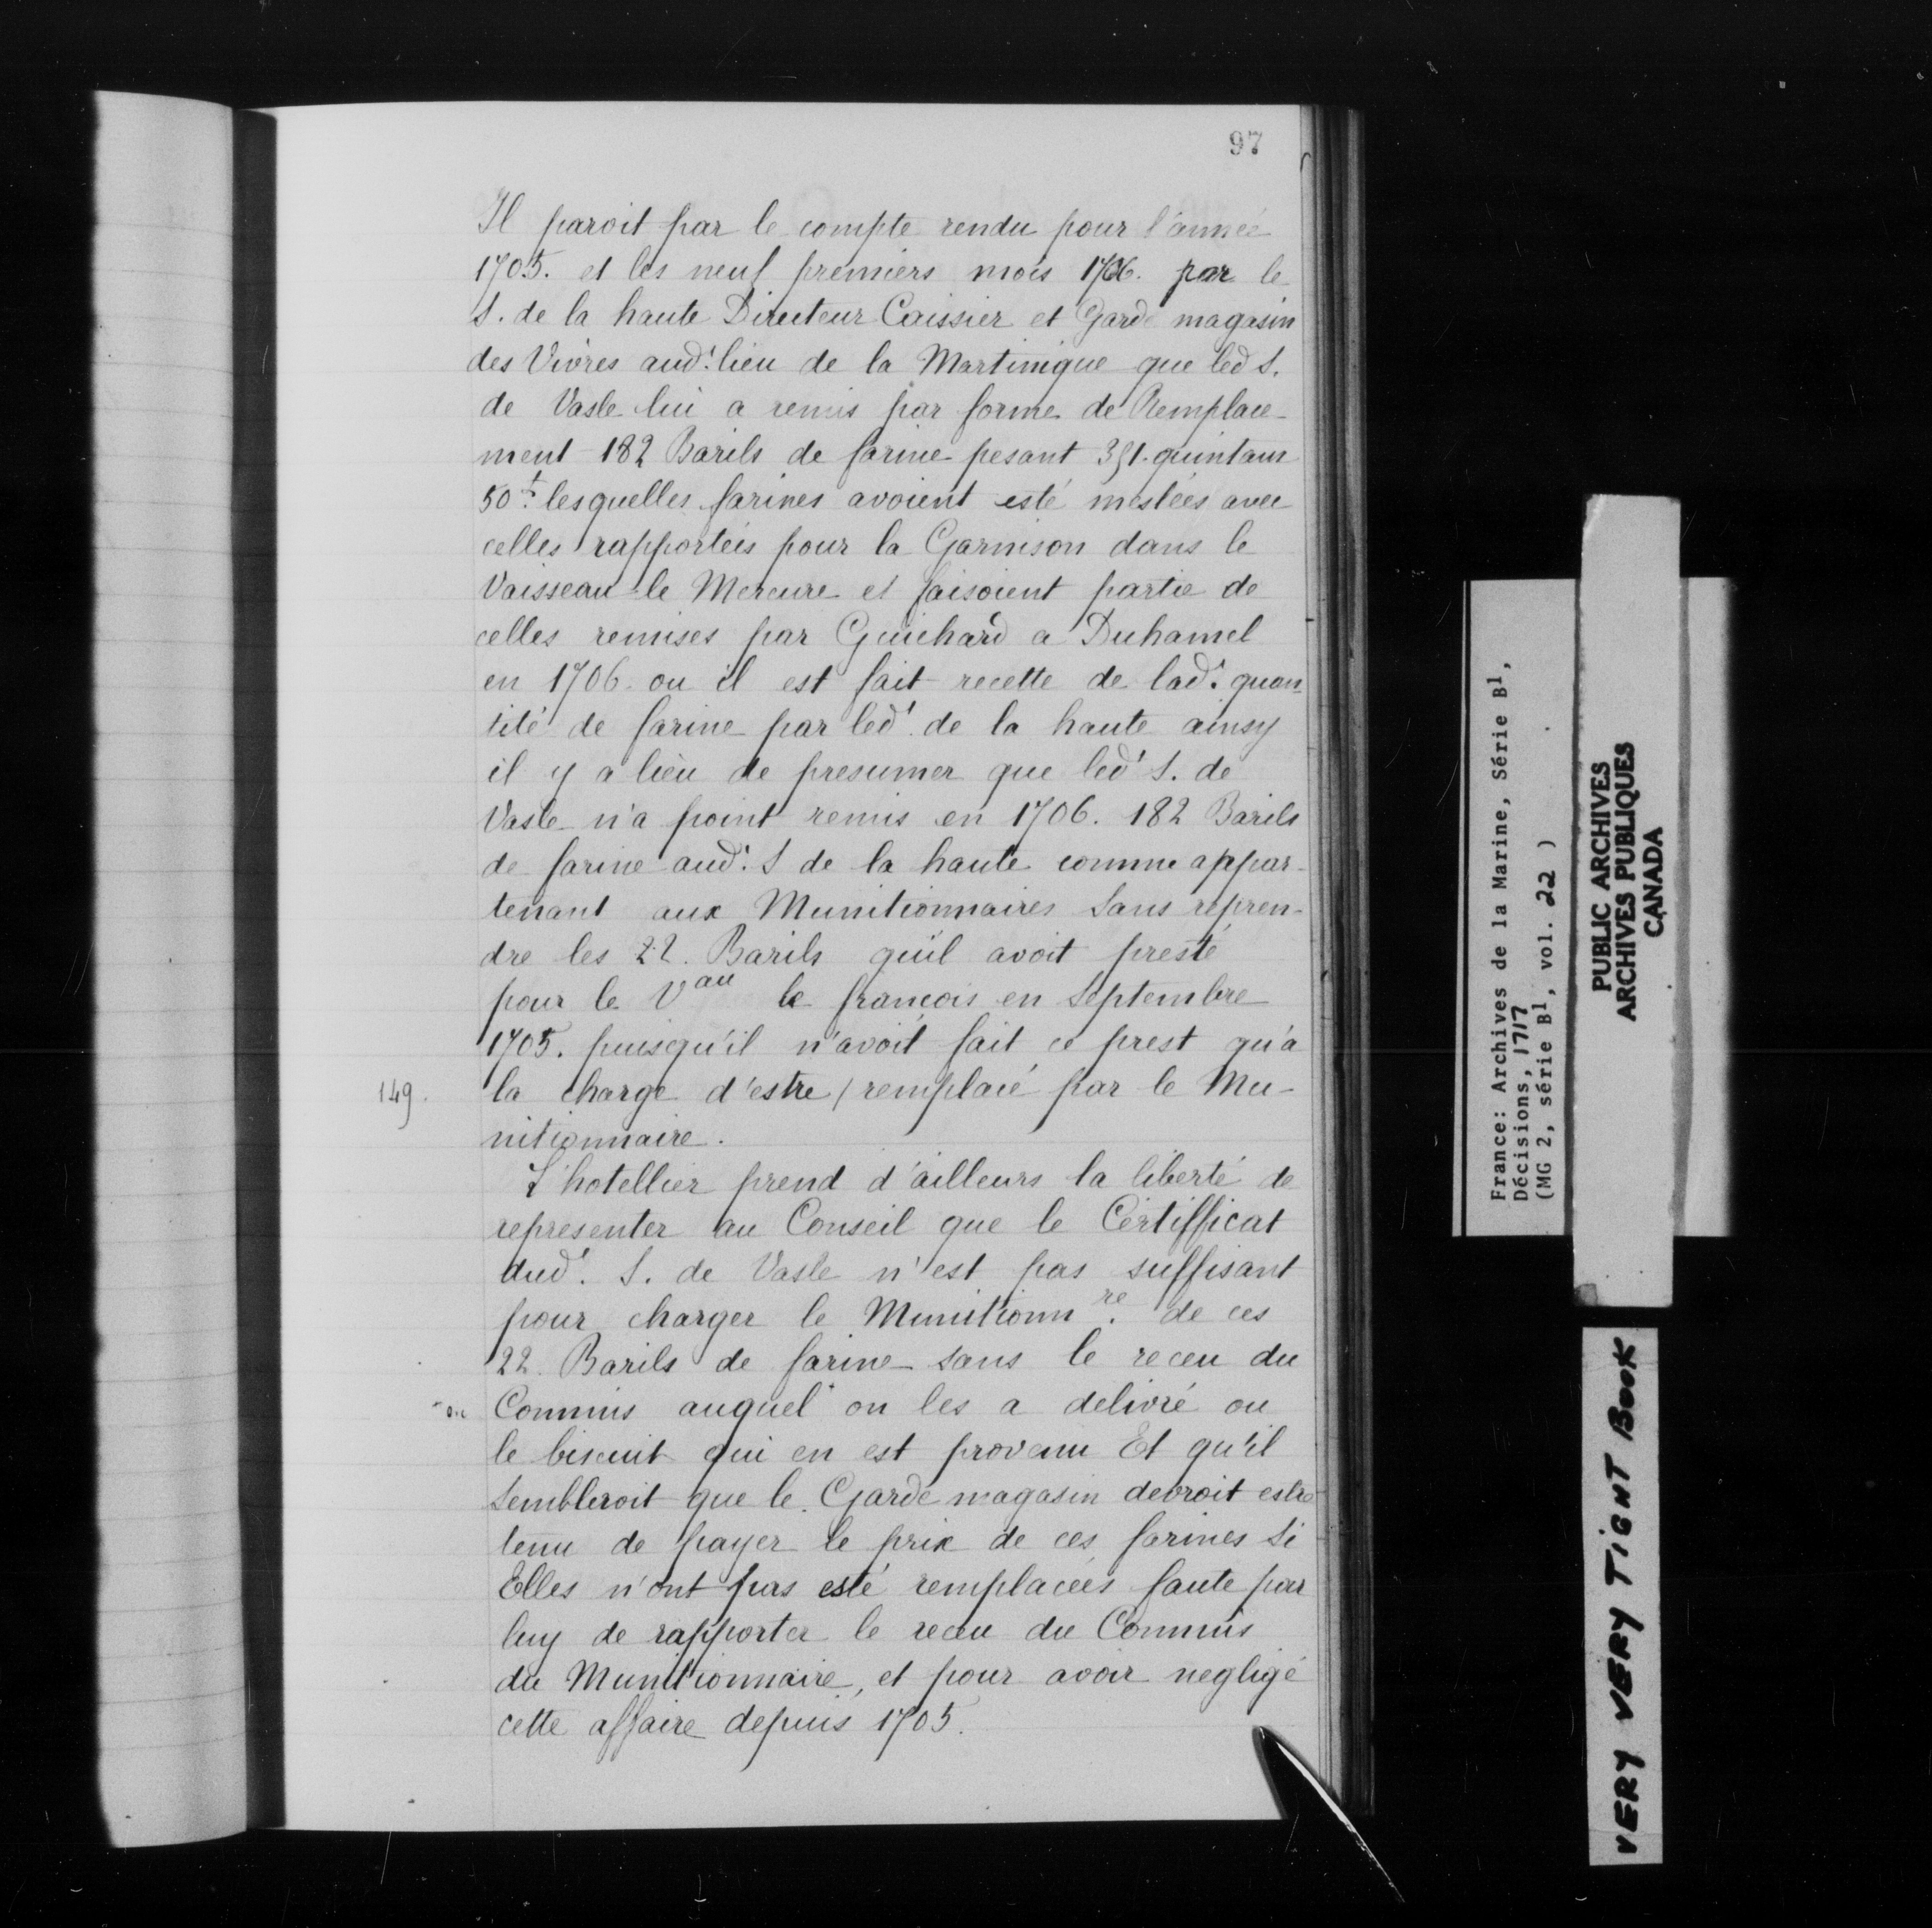 97
Il paroit par le compte rendu pour l'année
1705. et les neuf premiers mois 1706. par le
S. de la haute Directeur Caissier et Garde magasin
des Vivres aud.t lieu de la Martinique que led S.
de Vasle lui a remis par forme de Remplace-
ment 182 Barils de farine pesant 351. quintaux
50 lesquelles farines avoient esté meslées avec
celles rapportées pour la Garnison dans le
Vaisseau le Mercure et faisoient partie de
celles remises par Guichard a Duhamel
en 1706. ou il est fait recette de lad.t quan-
tité de farine par led.t de la haute ainsy
il y a lieu de presumer que led.t S. de
Vasle n'a point remis en 1706. 182 Barils
de farine aud.t S de la haute comme appar-
tenant aux Munitionnaires Sans repren-
dre les 22. Barils qu'il avoit presté
pour le Vau le francois en Septembre
1705. puisqu'il n'avoit fait ce prest qu'a
149. la charge d'estre / remplacé par le Mu-
nitionnaire.
L'hotellier prend d'ailleurs la liberté de
representer au Conseil que le Certifficat
dud.t S. de Vasle n'est pas suffisant
pour charger le Munitionn.re de ces
22. Barils de farine sans le receu du
Commis auquel on les a delivré ou
le biscuit qui en est provenu Et qu'il
Sembleroit que le Garde magasin devroit estre
tenu de payer le prix de ces farines Si
Elles n'ont pas esté remplacées faute par
luy de rapporter le receu du Commis
du Munitionnaire, et pour avoir negligé
cette affaire depuis 1705.
France: Archives de la Marine, Série B1,
Décisions, 1717
(MG 2, série B1, vol. 22 )
PUBLIC ARCHIVES
ARCHIVES PUBLIQUES
CANADA
VERY VERY TIGHT BOOK